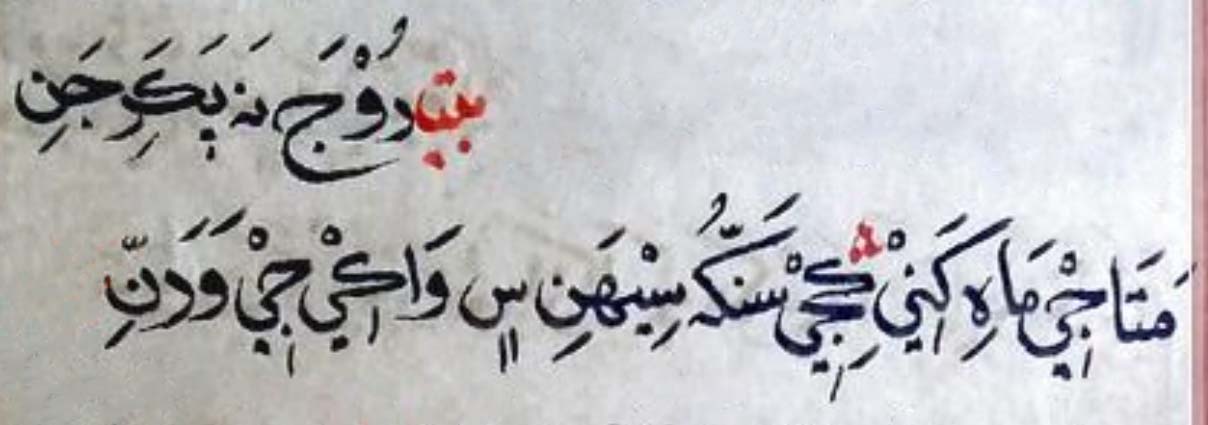 بيت دُوْجَ نَہ پَکَرِ جَنِ
مَتَا جِيْ مَاهِ کَنِيْ کِجِيْ سَنکُّہ سِيْهَنِ سِ وَاکِيْ جِيْ وَدَنِّ